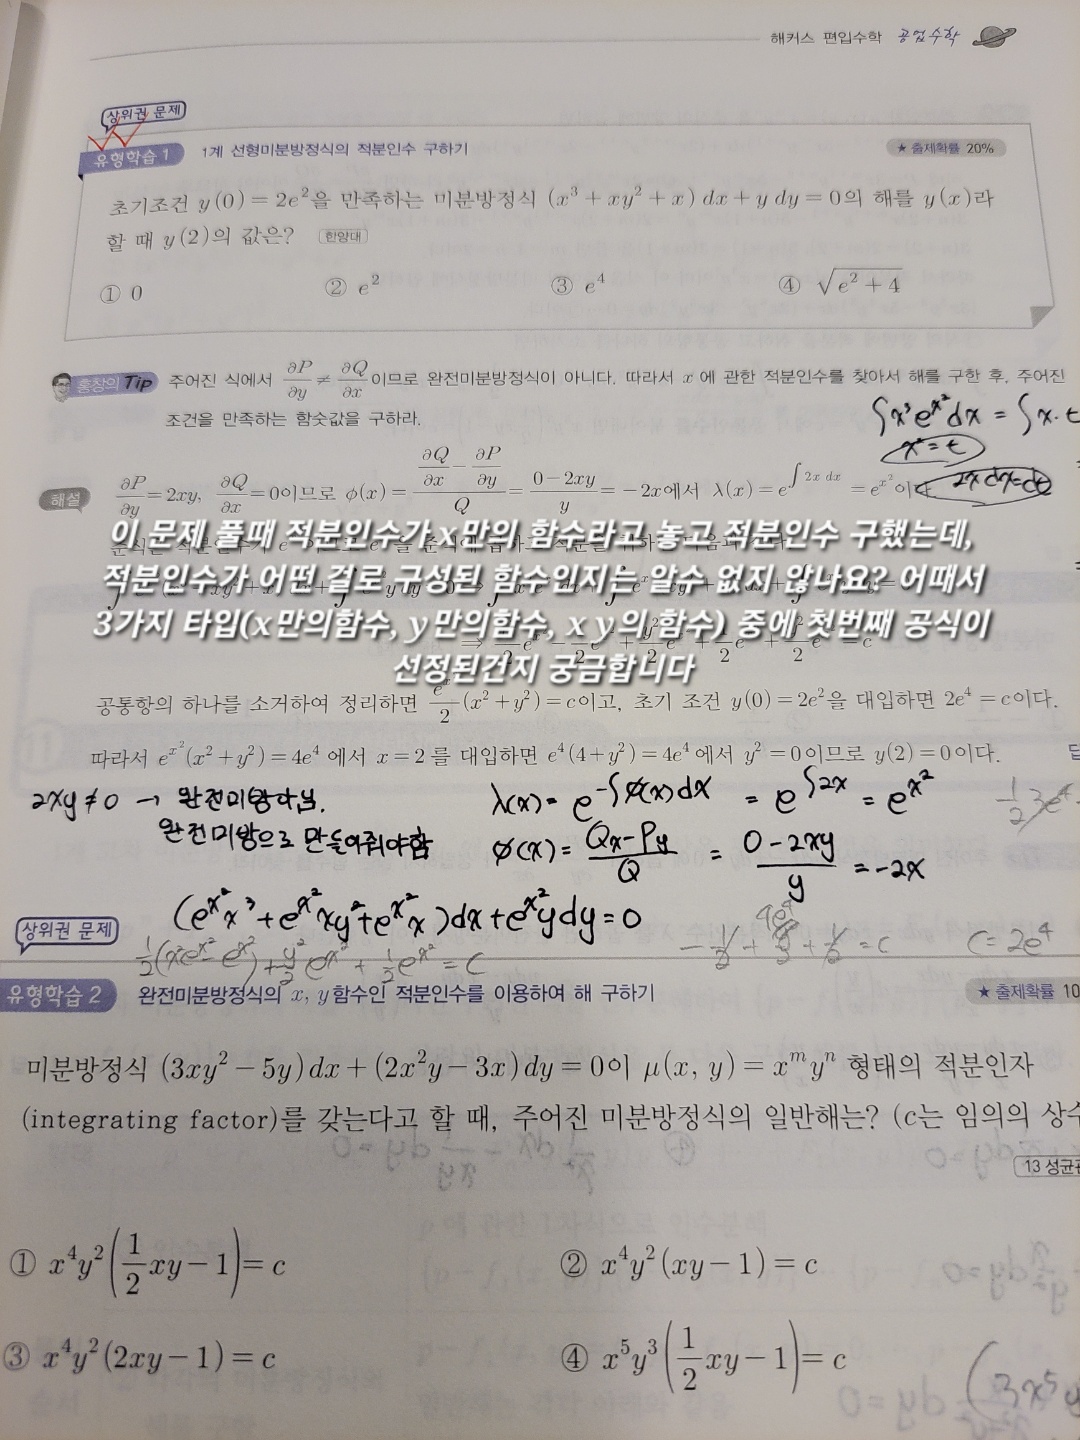 해커스 편입수학 공업수학
상위권 문제
유형학습 1 1계 선형미분방정식의 적분인수 구하기 ★ 출제확률 20%
초기조건 y(0) = 2e²을 만족하는 미분방정식 (x³ + xy² + x) dx + y dy = 0의 해를 y(x)라
할 때 y(2)의 값은? 한양대
① 0 ② e² ③ e⁴ ④ √(e² + 4)
홍창의 Tip 주어진 식에서 ∂P/∂y ≠ ∂Q/∂x 이므로 완전미분방정식이 아니다. 따라서 x에 관한 적분인수를 찾아서 해를 구한 후, 주어진
조건을 만족하는 함숫값을 구하라.
∫x³e^(x²)dx = ∫x·t
x² = t
2xdx=dt
해설 ∂P/∂y = 2xy, ∂Q/∂x = 0이므로 φ(x) = (∂Q/∂x − ∂P/∂y)/Q = (0 − 2xy)/y = −2x에서 λ(x) = e^(∫2x dx) = e^(x²)이
이 문제 풀때 적분인수가 x만의 함수라고 놓고 적분인수 구했는데,
적분인수가 어떤 걸로 구성된 함수인지는 알수 없지 않나요? 어째서
3가지 타입(x만의함수, y만의함수, x y의 함수) 중에 첫번째 공식이
선정된건지 궁금합니다
공통항의 하나를 소거하여 정리하면 e^(x²)/2 (x² + y²) = c이고, 초기 조건 y(0) = 2e²을 대입하면 2e⁴ = c이다.
따라서 e^(x²)(x² + y²) = 4e⁴에서 x = 2를 대입하면 e⁴(4 + y²) = 4e⁴에서 y² = 0이므로 y(2) = 0이다.
2xy ≠ 0 → 완전미방아님.
완전미방으로 만들어줘야함
λ(x) = e^(-∫φ(x)dx) = e^(∫2x) = e^(x²)
φ(x) = (Qx−Py)/Q = (0−2xy)/y = −2x
(e^(x²)x³ + e^(x²)xy² + e^(x²)x)dx + e^(x²)ydy = 0
½(x²e^(x²) − e^(x²)) + y²/2 e^(x²) + ½e^(x²) = C
C = 2e⁴
상위권 문제
유형학습 2 완전미분방정식의 x, y함수인 적분인수를 이용하여 해 구하기 ★ 출제확률 10
미분방정식 (3xy² − 5y)dx + (2x²y − 3x)dy = 0이 μ(x, y) = x^m y^n 형태의 적분인자
(integrating factor)를 갖는다고 할 때, 주어진 미분방정식의 일반해는? (c는 임의의 상수
13 성균관
① x⁴y²(½xy − 1) = c ② x⁴y²(xy − 1) = c
③ x⁴y²(2xy − 1) = c ④ x⁵y³(½xy − 1) = c